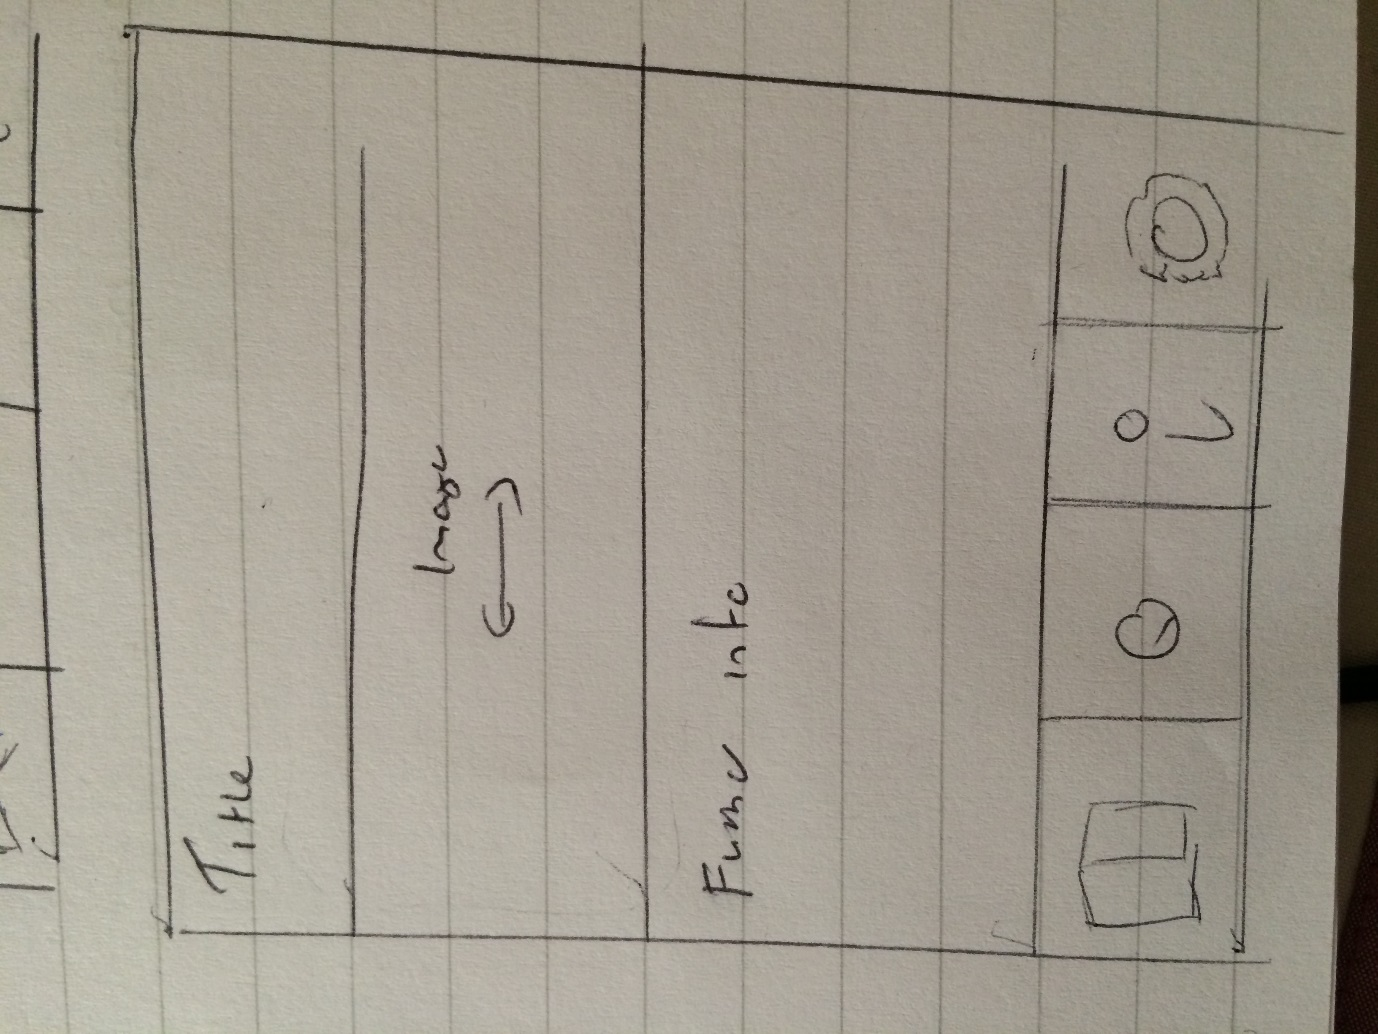 Title
Image
Func info